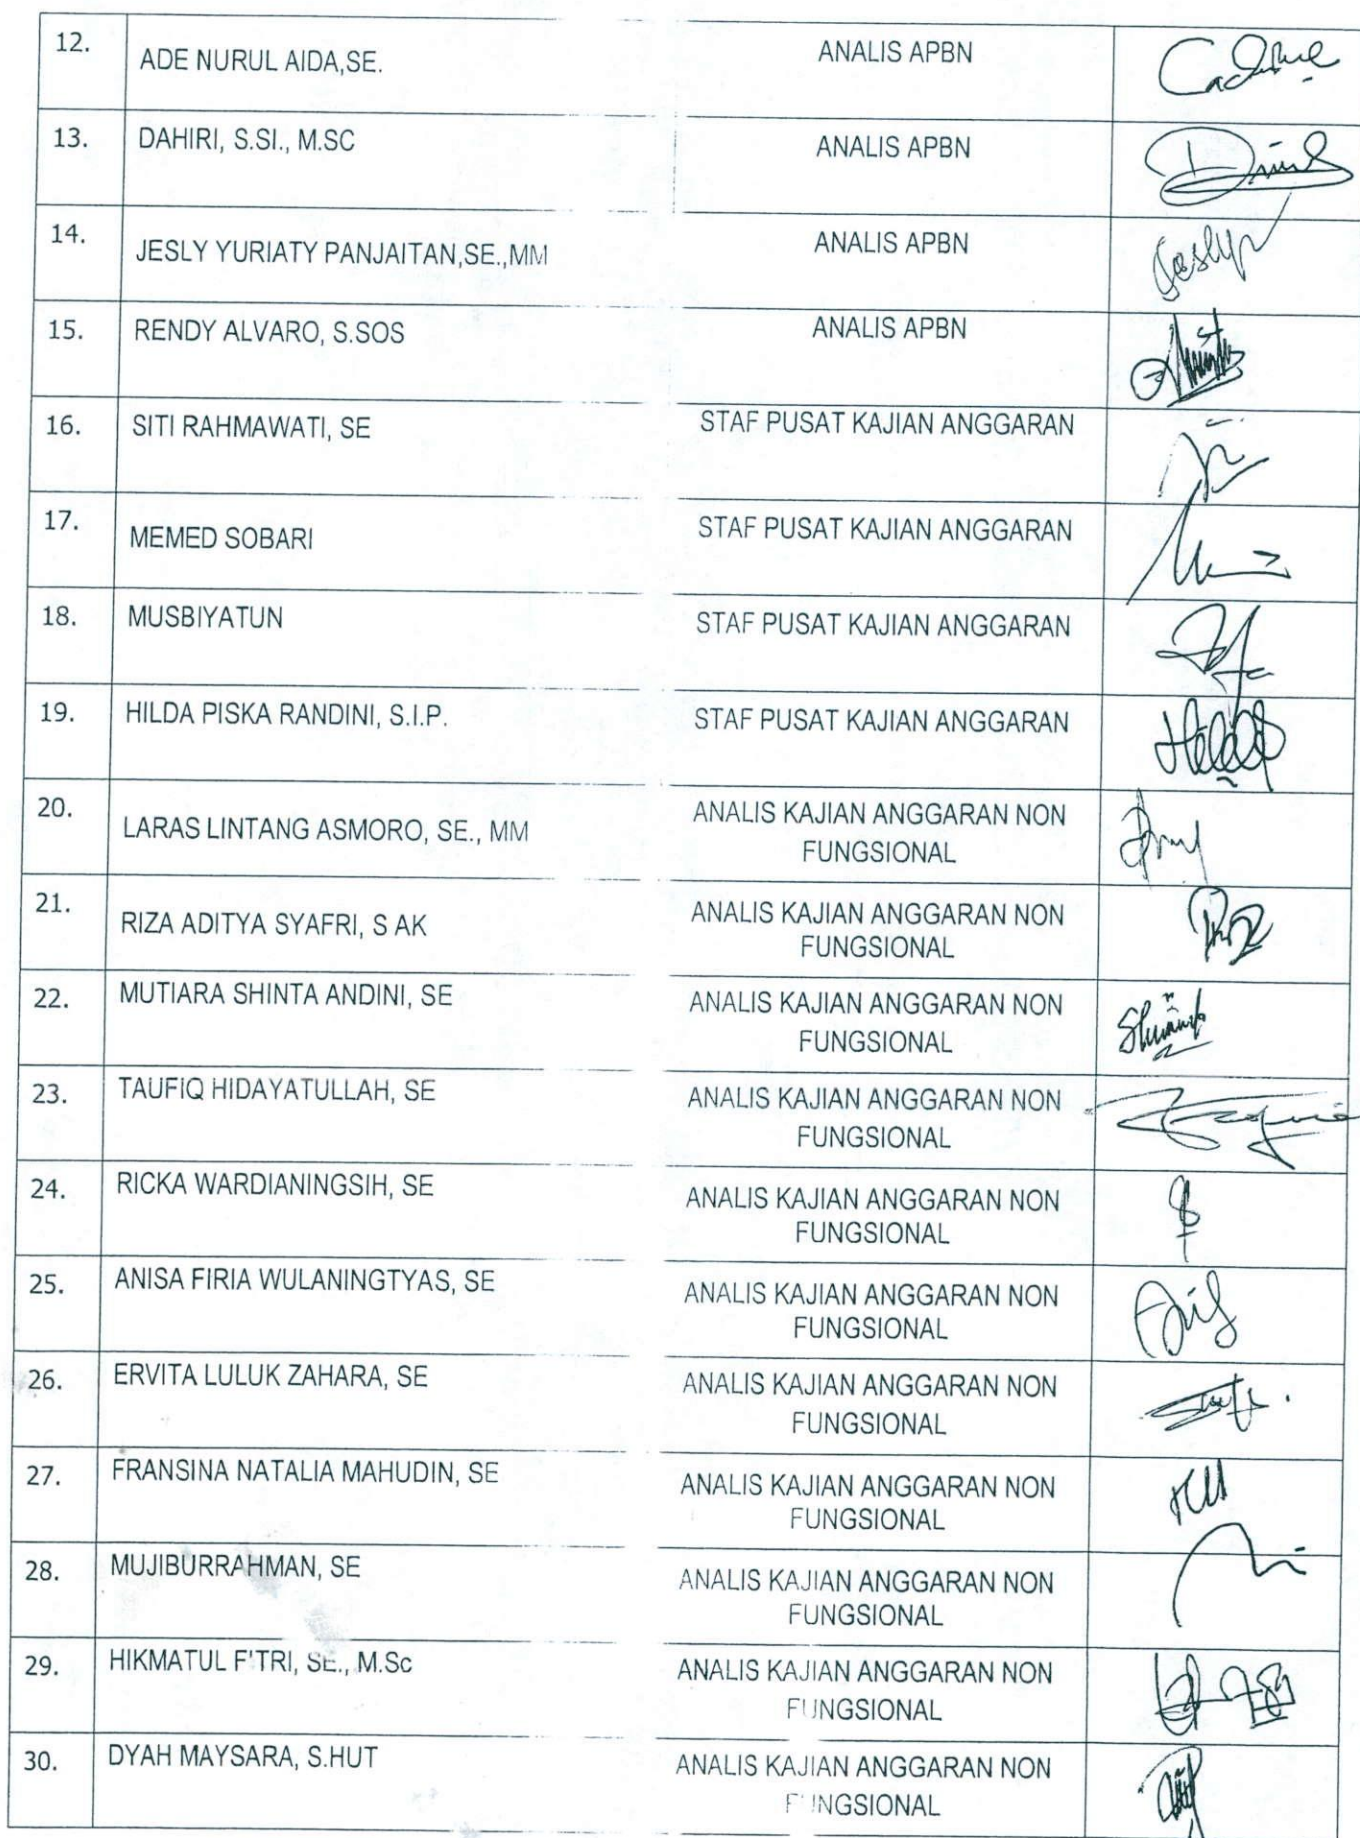 12. ADE NURUL AIDA,SE. ANALIS APBN
13. DAHIRI, S.SI., M.SC ANALIS APBN
14. JESLY YURIATY PANJAITAN,SE.,MM ANALIS APBN
15. RENDY ALVARO, S.SOS ANALIS APBN
16. SITI RAHMAWATI, SE STAF PUSAT KAJIAN ANGGARAN
17. MEMED SOBARI STAF PUSAT KAJIAN ANGGARAN
18. MUSBIYATUN STAF PUSAT KAJIAN ANGGARAN
19. HILDA PISKA RANDINI, S.I.P. STAF PUSAT KAJIAN ANGGARAN
20. LARAS LINTANG ASMORO, SE., MM ANALIS KAJIAN ANGGARAN NON
FUNGSIONAL
21. RIZA ADITYA SYAFRI, S AK ANALIS KAJIAN ANGGARAN NON
FUNGSIONAL
22. MUTIARA SHINTA ANDINI, SE ANALIS KAJIAN ANGGARAN NON
FUNGSIONAL
23. TAUFIQ HIDAYATULLAH, SE ANALIS KAJIAN ANGGARAN NON
FUNGSIONAL
24. RICKA WARDIANINGSIH, SE ANALIS KAJIAN ANGGARAN NON
FUNGSIONAL
25. ANISA FIRIA WULANINGTYAS, SE ANALIS KAJIAN ANGGARAN NON
FUNGSIONAL
26. ERVITA LULUK ZAHARA, SE ANALIS KAJIAN ANGGARAN NON
FUNGSIONAL
27. FRANSINA NATALIA MAHUDIN, SE ANALIS KAJIAN ANGGARAN NON
FUNGSIONAL
28. MUJIBURRAHMAN, SE ANALIS KAJIAN ANGGARAN NON
FUNGSIONAL
29. HIKMATUL F'TRI, SE., M.Sc ANALIS KAJIAN ANGGARAN NON
FUNGSIONAL
30. DYAH MAYSARA, S.HUT ANALIS KAJIAN ANGGARAN NON
FUNGSIONAL